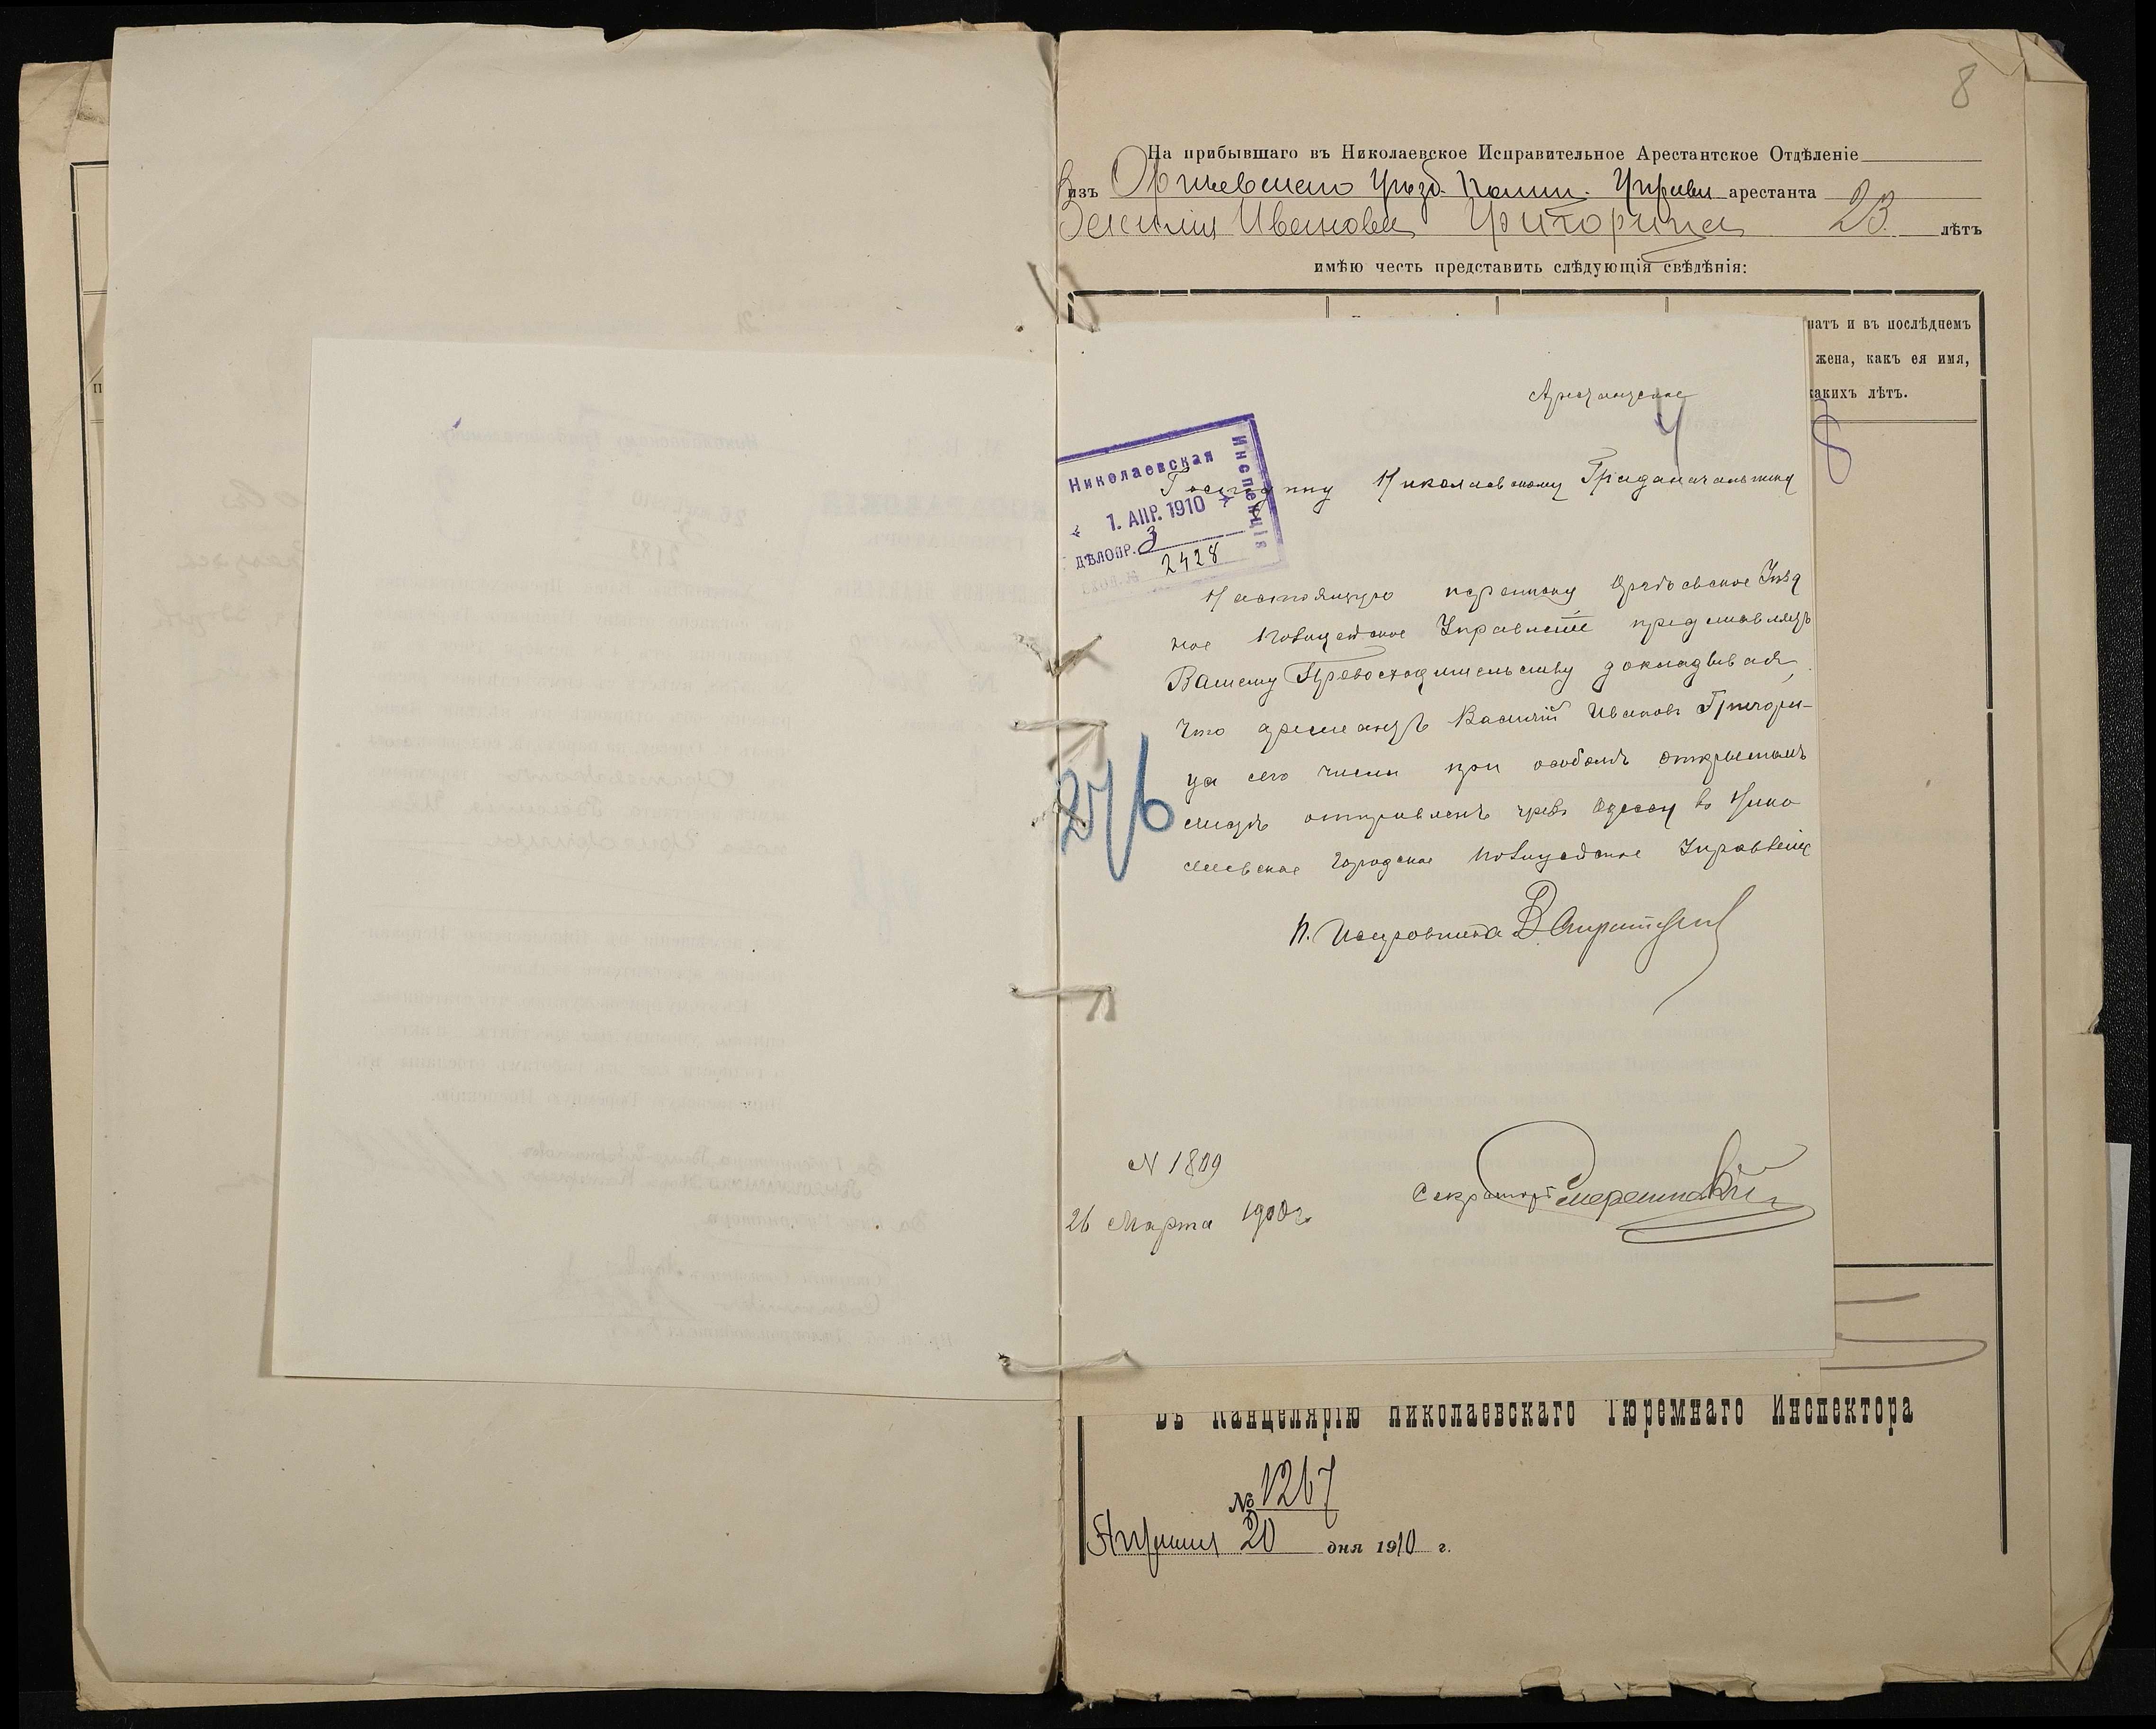 8
На прибывшаго въ Николаевское Исправительное Арестантское Отдѣленіе
изъ Оргѣевскаго Уѣзд. Полиц. Управл арестанта
Василія Иванова Григорица 23 лѣтъ
имѣю честь представить слѣдующія свѣдѣнія:
натъ и въ послѣднемъ
жена, какъ ея имя,
какихъ лѣтъ.
Арестантское
4
8
Николаевская
Инспекція
1. АПР. 1910
ДѢЛОПР. 3
2428
Господину Николаевскому Градоначальнику
Настоящую переписку Оргѣевское Уѣзд
ное Полицейское Управленіе представляетъ
Вашему Превосходительству докладывая,
что арестантъ Василій Ивановъ Григори-
ца сего числа при особомъ открытомъ
листѣ отправленъ чрезъ Одессу въ Нико
лаевское Городское Полицейское Управленіе
276
П. Исправника
N 1809
Секретарь
26 Марта 1910 г.
Въ Канцелярію Николаевскаго Тюремнаго Инспектора
№ 1267
Апрѣля 20 дня 1910 г.